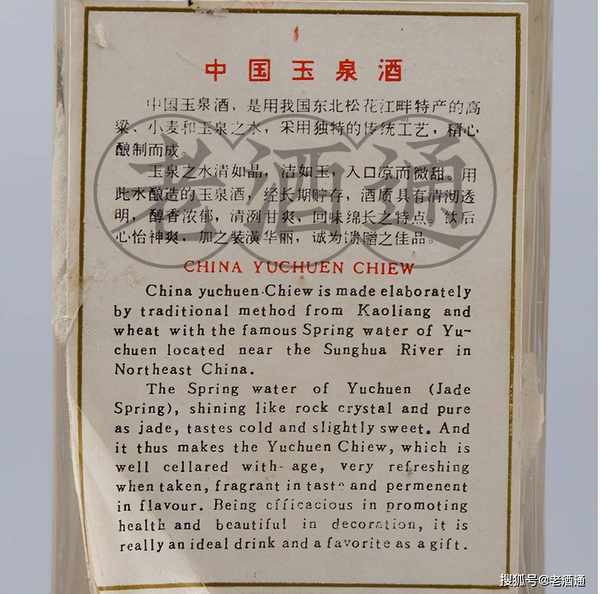 中国玉泉酒
中国玉泉酒，是用我国东北松花江畔特产的高
粱、小麦和玉泉之水，采用独特的传统工艺，精心
酿制而成。
玉泉之水清如晶，洁如玉，入口凉而微甜。用
此水酿造的玉泉酒，经长期贮存，酒质具有清沏透
明，醇香浓郁，清洌甘爽，回味绵长之特点。饮后
心怡神爽，加之装潢华丽，诚为馈赠之佳品。
老酒通
CHINA YUCHUEN CHIEW
China yuchuen-Chiew is made elaborately
by traditional method from Kaoliang and
wheat with the famous Spring water of Yu-
chuen located near the Sunghua River in
Northeast China.
The Spring water of Yuchuen (Jade
Spring), shining like rock crystal and pure
as jade, tastes cold and slightly sweet. And
it thus makes the Yuchuen Chiew, which is
well cellared with- age, very refreshing
when taken, fragrant in taste and permenent
in flavour. Being efficacious in promoting
health and beautiful in decoration, it is
really an ideal drink and a favorite as a gift.
搜狐号@老酒通